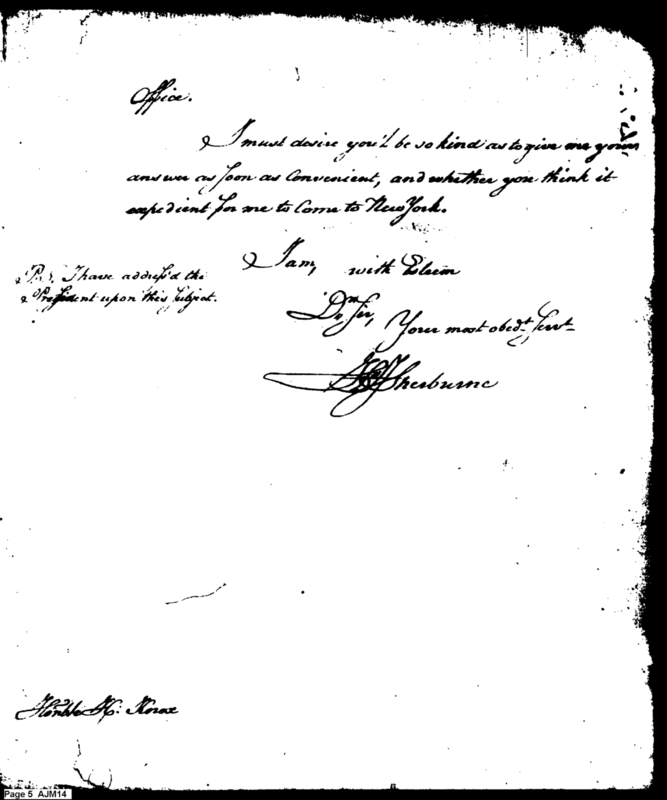 Office.
I must desire you'l be so kind as to give me your
answer as soon as Convenient, and whether you think it
expedient for me to Come to New York.
I am, with Esteem
Dr Sir, Your most obedt. Servt
Sherburne
P.S. I have address'd the
President upon this subject.
Honble H: Knox
Page 5 AJM14